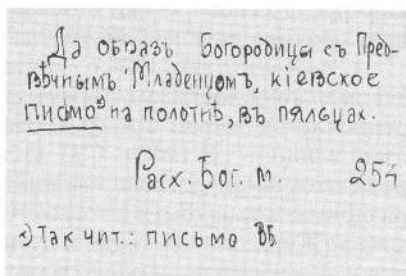 Да образъ Богородицы съ Пред-
вѣчнымъ Младенцомъ, кіевское
письмо¹⁾ на полотнѣ, въ пяльцах.
Расх. Бог. м. 254
¹⁾ Так чит.: письмо ВБ